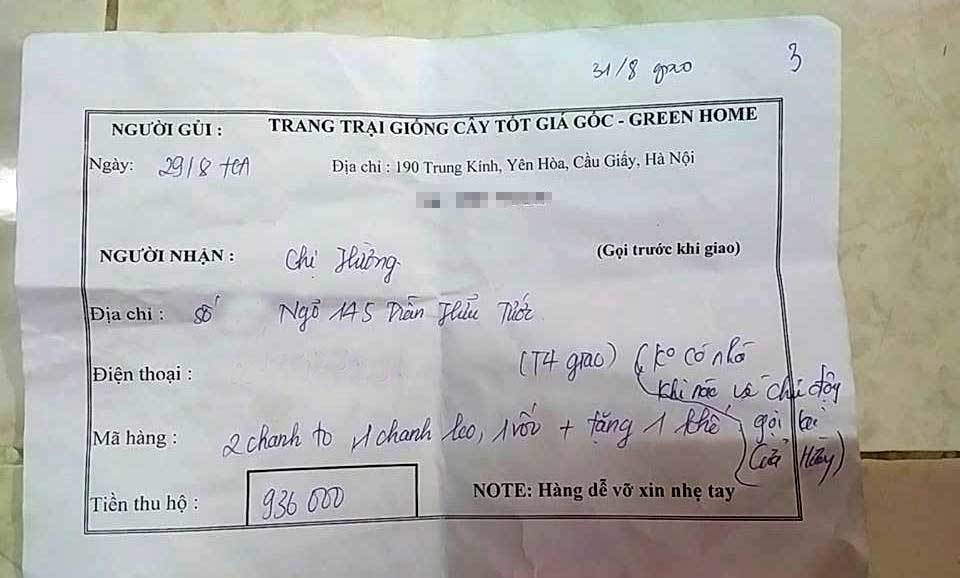 31/8 giao 3
NGƯỜI GỬI : TRANG TRẠI GIỐNG CÂY TỐT GIÁ GỐC - GREEN HOME
Ngày: 29/8 Địa chỉ : 190 Trung Kính, Yên Hòa, Cầu Giấy, Hà Nội
NGƯỜI NHẬN : Chị Hường (Gọi trước khi giao)
Địa chỉ : Số Ngõ 145 Trần Hữu Tước
Điện thoại : (T4 giao) (ko có nhà
khi nào về chủ động
Mã hàng : 2 chanh to, 1 chanh leo, 1 vối + tặng 1 khế gọi lại
Tiền thu hộ : 936 000 NOTE: Hàng dễ vỡ xin nhẹ tay